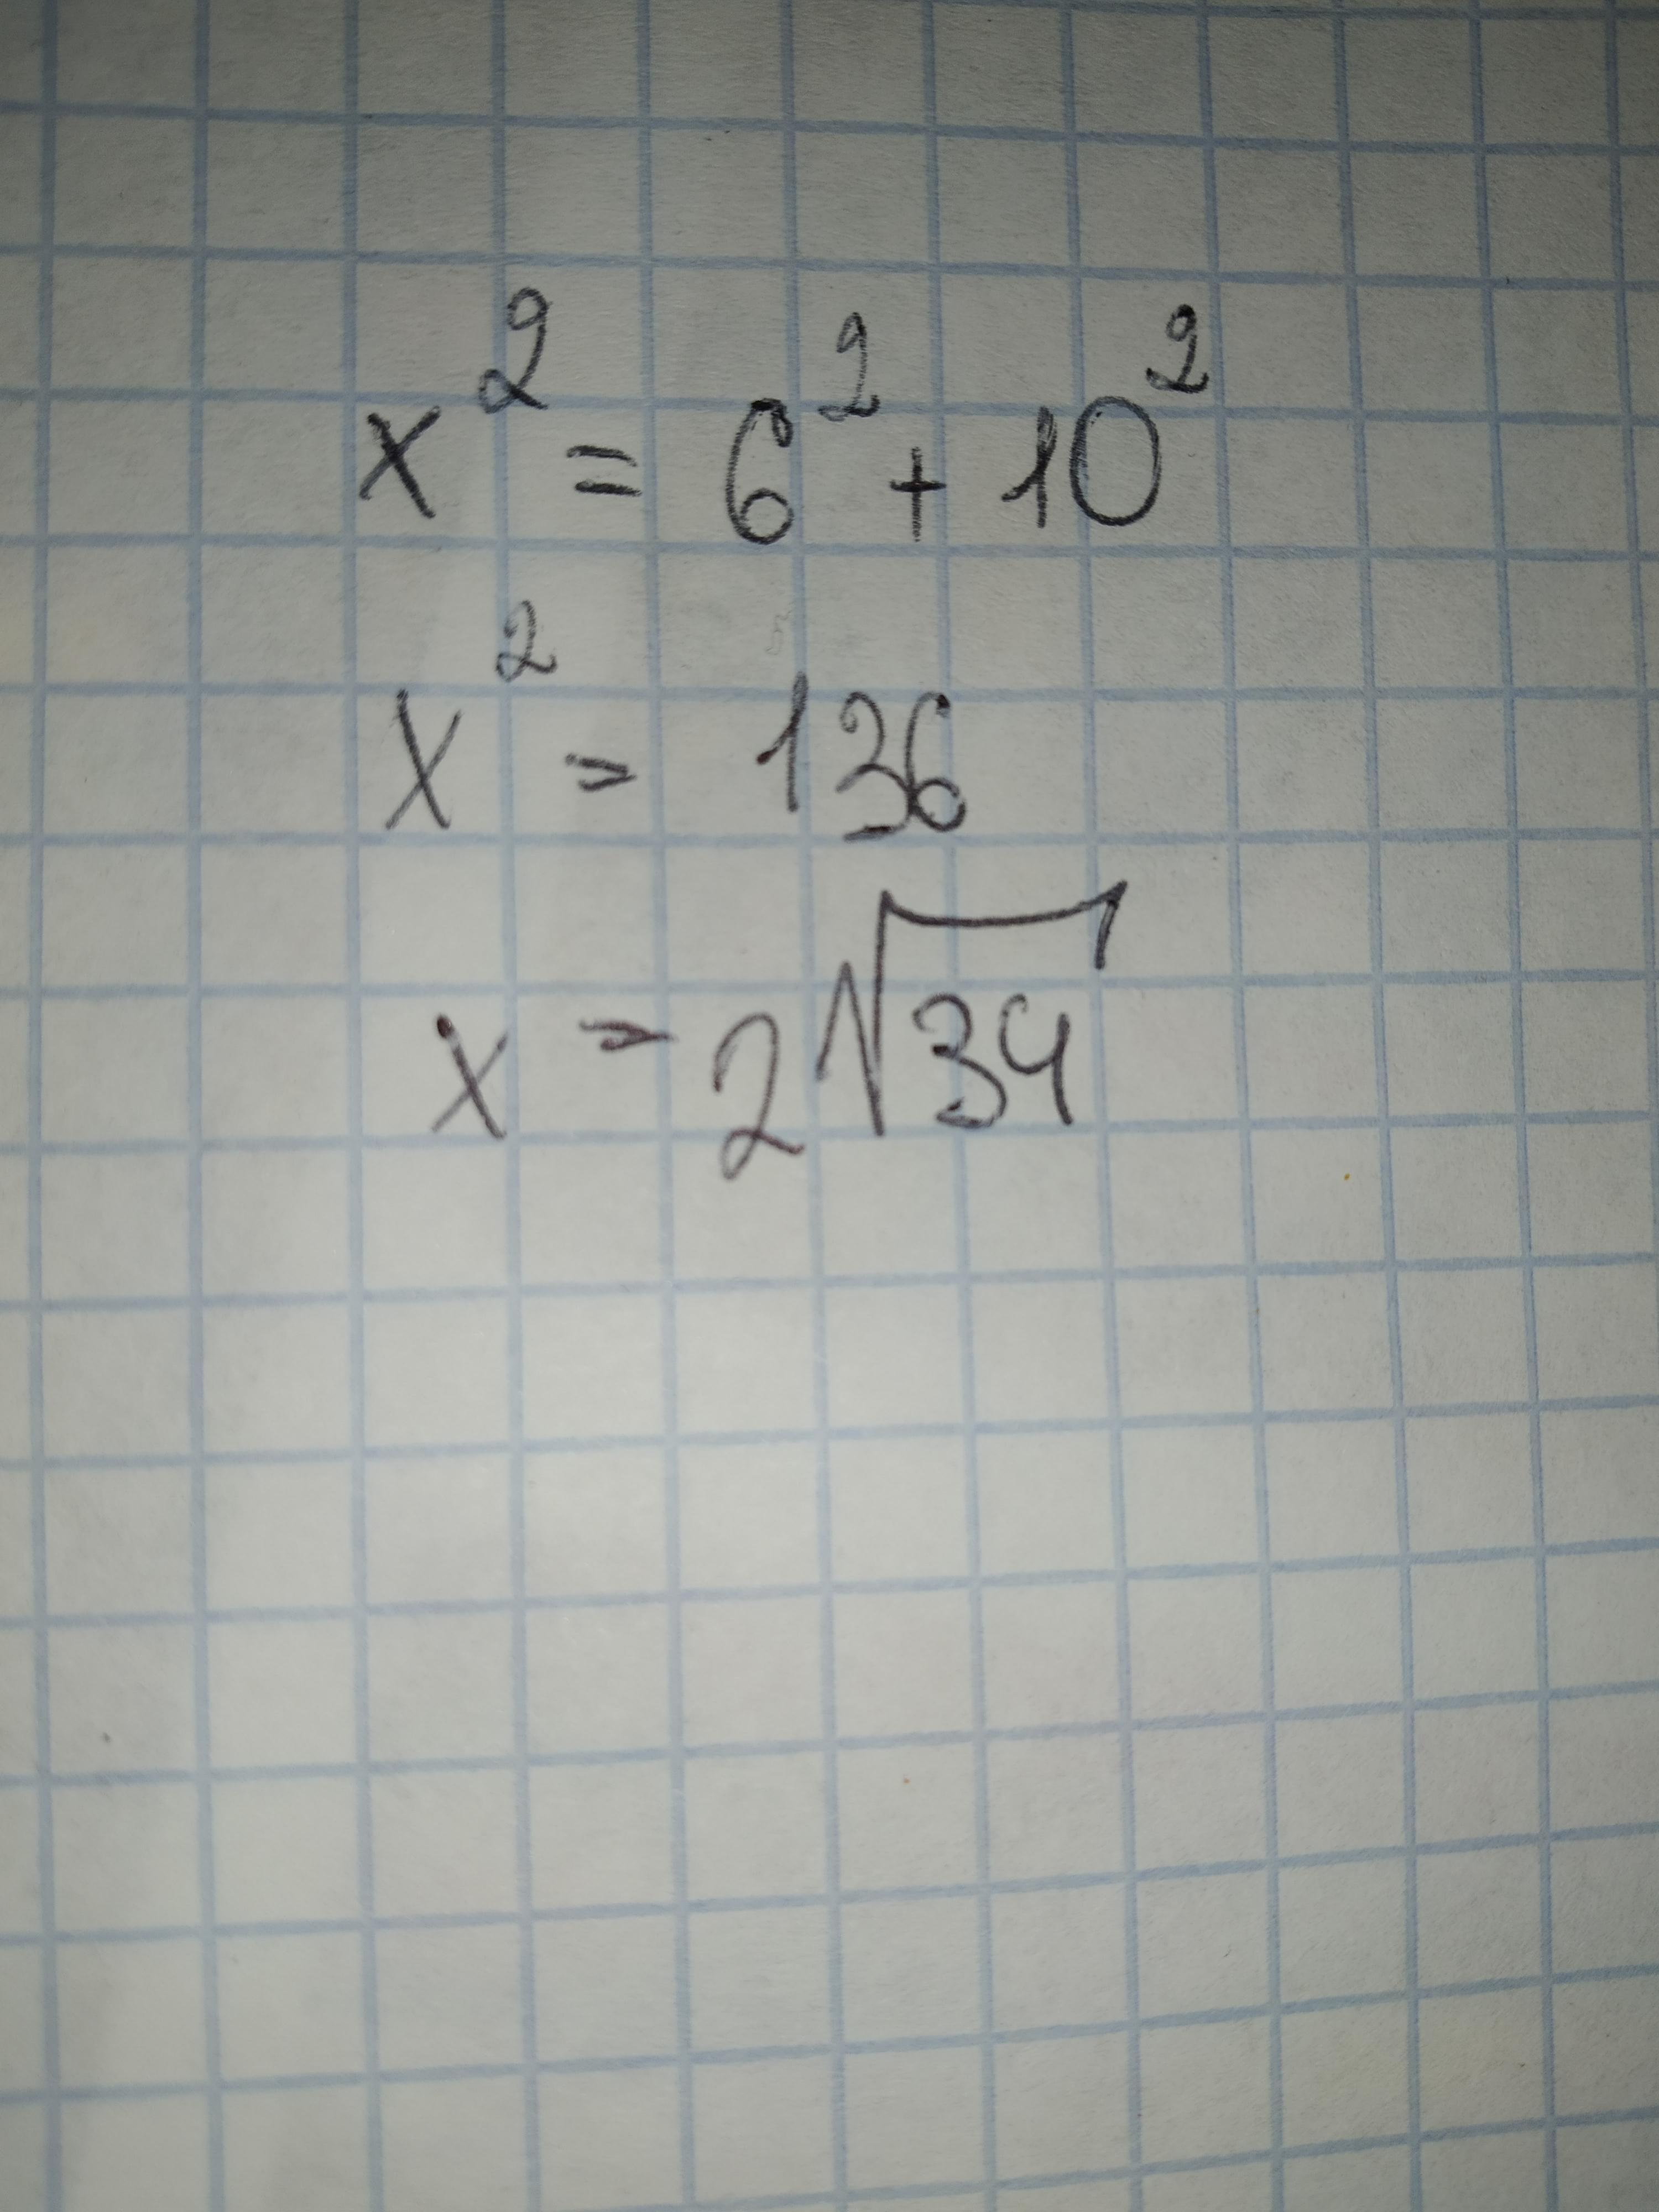 x² = 6² + 10²
x² = 136
x = 2√34